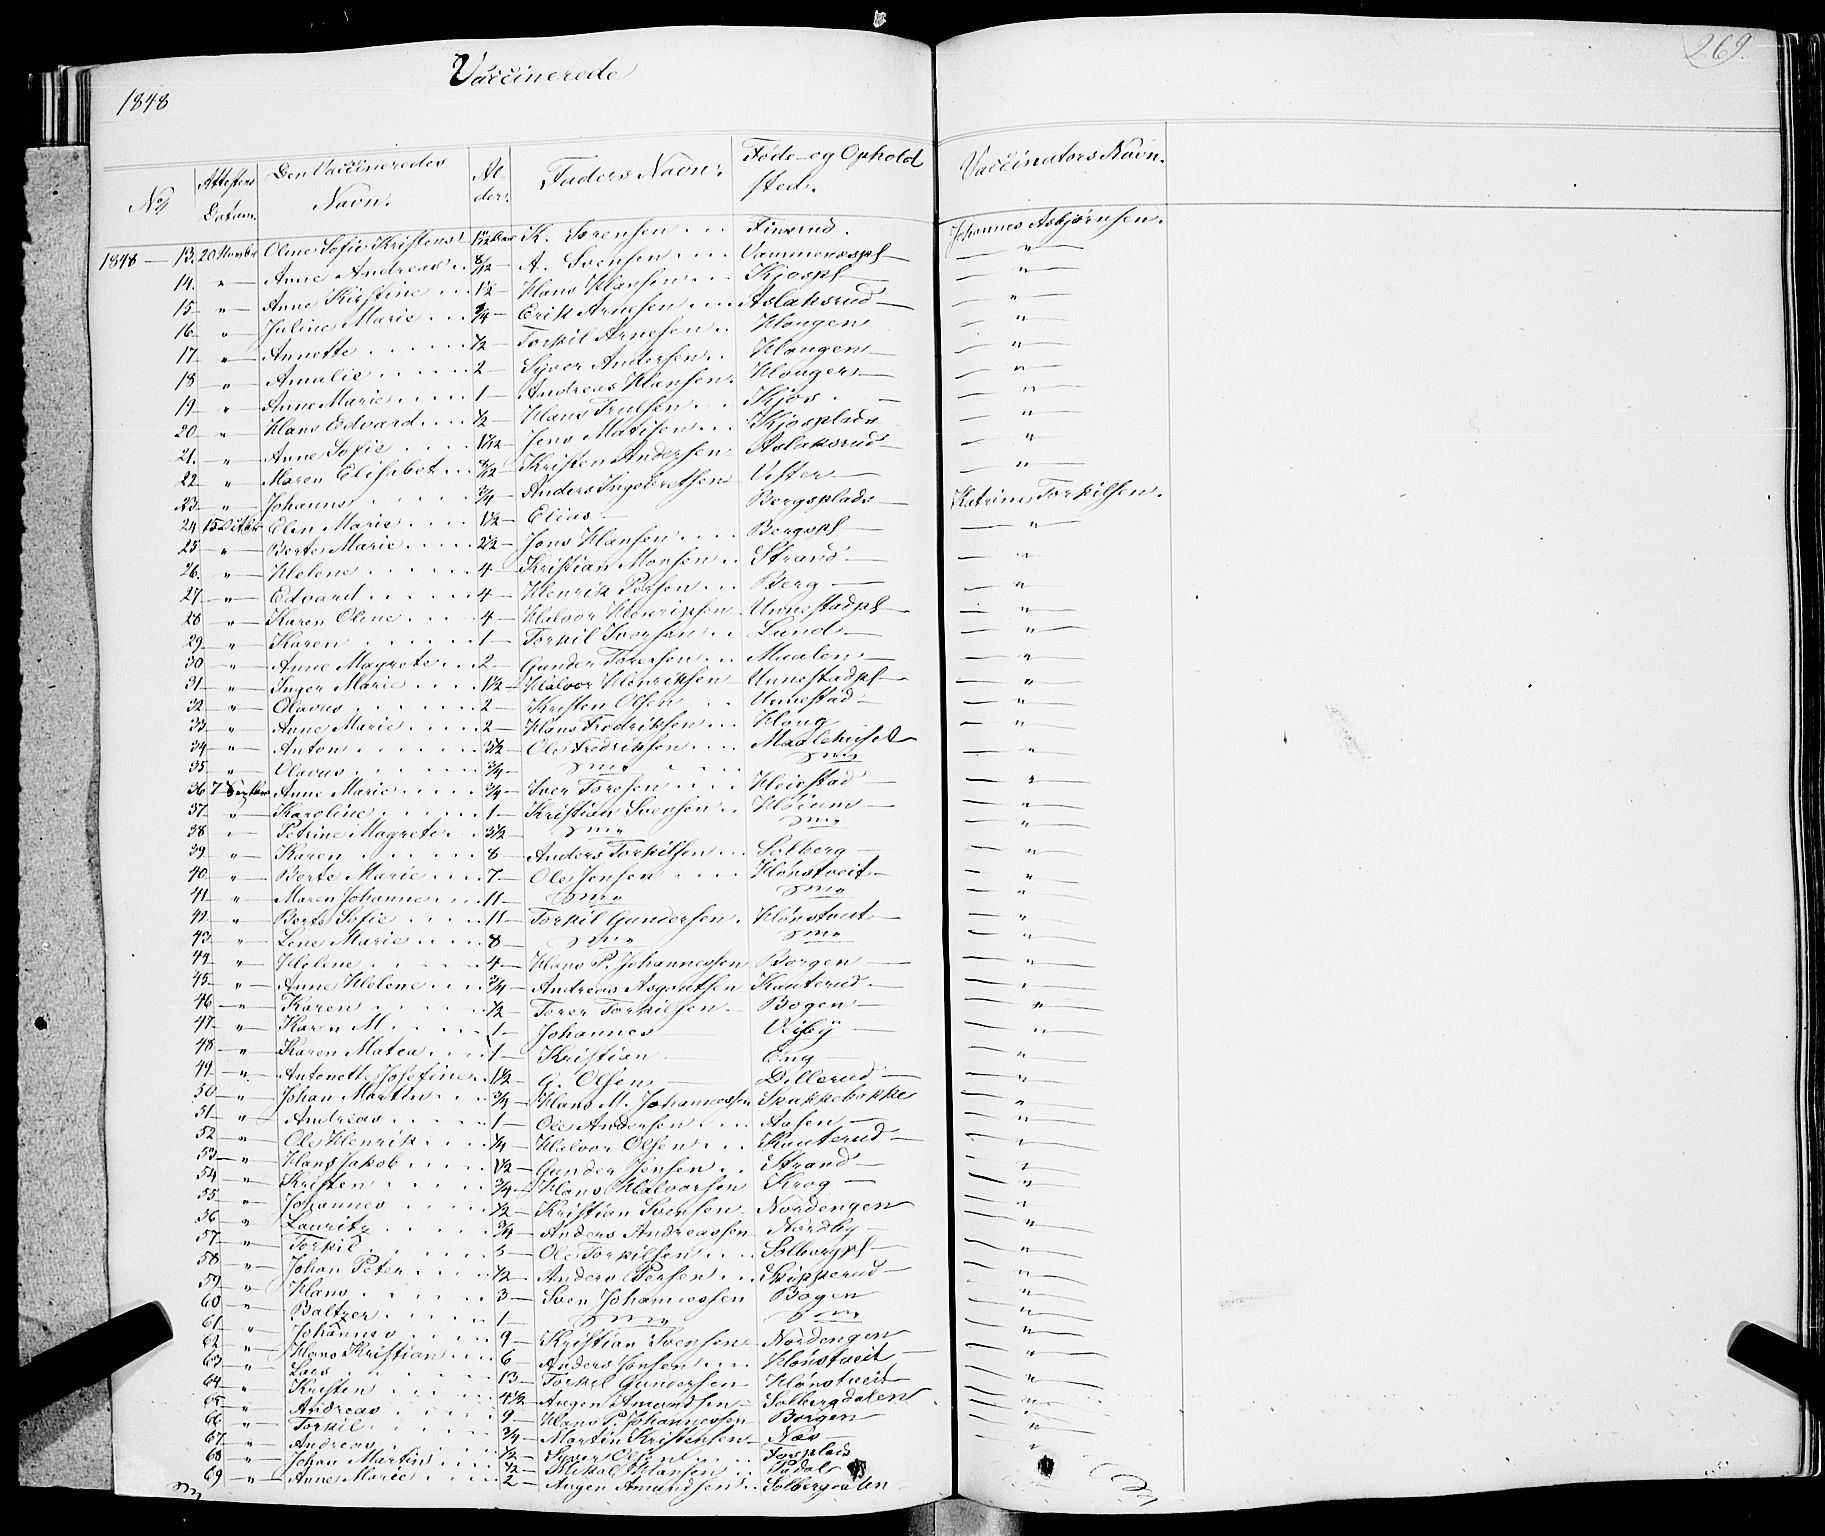 269.
Vaccinerede
1848
No Attestens Datum. Den Vaccineredes Navn. Alder. Faders Navn. Føde- og Opholdsted. Vaccinators Navn.
1848 — 13. 20 Novbr Oline Sofie Kristens K. Sørensen Finsrud. Johannes Asbjørnsen.
14. " Anne Andreas 8/12 A. Svensen Vammenæspl — "
15 — " Anne Kirstine 1 1/2 Hans Hansen Kjospl — "
16 — " Juline Marie 3/4 Erik Arnesen Aslaksrud — "
17 — " Annette 1/2 Torkil Arnesen Hougen "
18 " Amalie 2 — Syver Andersen Hougen — "
19 — " Anne Marie 1 — Andreas Hansen Hougen — "
20 — " Hans Edvard 1/2 Hans Trulsen Kjos. — "
21. " Anne Sofie Jens Matisen Kjosplads "
22 — " Maren Elisabet Kristen Andersen Aslaksrud — "
23 — " Johanne 3/4 Anders Ingebretsen Vister — "
24 15 Oktbr Elen Marie 1 1/2 — Elias — Bergsplads — Katrine Torkilsen.
25 — " Berte Marie 2 1/2 — Jens Hansen Bergspl — "
26. " Helene 4 — Kristian Monsen Strand — "
27 — " Edvard 4 — Henrik Persen Berg — "
28 — " Karen Oline 4 — Halvor Henriksen Unnestadpl — "
29 — " Karen 1 — Torkil Iversen Lund — "
30 — " Anne Magrete 2 — Gunder Toresen Maalen — "
31 — " Inger Marie 1 1/2 — Halvor Henriksen Unnestadpl — "
32 — " Olavus 2 — Kristen Olsen Unnestad — "
33 — " Anne Marie 2 — Hans Fredriksen Houg "
34 — " Anton 3 1/2 — Ole Fredriksen Maalehuset "
35 — " Olavus 3/4 — Sme Sme "
36 7 Anne Marie 3/4 — Iver Toresen Heiestad — "
37 — " Karoline 1 — Kristian Svensen Høium — "
38 — " Petrine Magrete 3 1/2 — Sme Sme "
39 — " Karen 8 — Anders Torkilsen Solberg — "
40 — " Berte Marie 7 — Ole Jensen Hønstveit — "
41 — " Maren Johanne 11 — Sme Sme "
42 — " Berte Sofie 11 — Torkil Gundersen Hønstveit — "
43 — " Lene Marie 8 — Sme Sme "
44 — " Helene 4 — Hans P. Johannessen Borgen — "
45 — " Anne Helene 3/4 — Andreas Asgoutsen Kanterud — "
46 — " Karen 1/2 — Torer Torkilsen Bogen — "
47 — " Karen M. 1 — Johannes — Veisby — "
48 — " Karen Matea 1 — Kristian — Eng — "
49 — " Antonette Josefine 1 1/2 — G. Olsen — Dillerud — "
50 — " Johan Martin 3/4 — Hans M. Johannessen Skakkebakke "
51 — " Andreas 1 — Ole Andersen Aasen — "
52 — " Ole Henrik 1/4 — Halvor Olsen Kanterud — "
53 — " Hans Jakob 1 1/2 — Gunder Jensen Strand — "
54 — " Kristen 3/4 — Hans Halvorsen Krog — "
55 " Johannes 1/2 — Kristian Svensen Nordengen "
56 — " Lauritz 3/4 — Anders Andreassen Nordby — "
57 — " Torkil Ole Torkilsen Solbergpl — "
58 — " Johan Peter 1/2 — Anders Persen Skipperud — "
59 — " Hans 3 — Sven Johannessen Bogen "
60 — " Baltzer 1 — Sme Sme "
61 — " Johannes 9 — Kristian Svensen Nordengen "
62 — " Hans Kristian 6 — Anders Jensen Hønstveit — "
63 — " Lars 13 — Torkil Gundersen Hønstveit "
64 — " Kristen 4 1/2 — Augen Amundsen Solbergdalen "
65 — " Andreas 9 — Hans P. Johannessen Borgen "
66 — " Torkil 3/4 — Martin Kristensen Næs — "
67 — " Andreas 1/2 — Syver Olsen Torsplads
68 — " Johan Martins 1/2 — Mikal Hansen
69 — " Anne Marie 2 — Augen Amundsen Solbergdalen